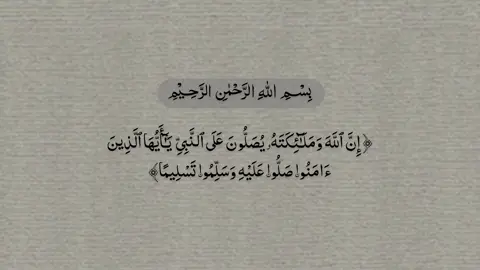 بِسْمِ اللهِ الرَّحْمٰنِ الرَّحِيْمِ
﴿إِنَّ ٱللَّهَ وَمَلَـٰٓئِكَتَهُۥ يُصَلُّونَ عَلَى ٱلنَّبِىِّ يَـٰٓأَيُّهَا ٱلَّذِينَ
ءَامَنُوا۟ صَلُّوا۟ عَلَيْهِ وَسَلِّمُوا۟ تَسْلِيمًا﴾